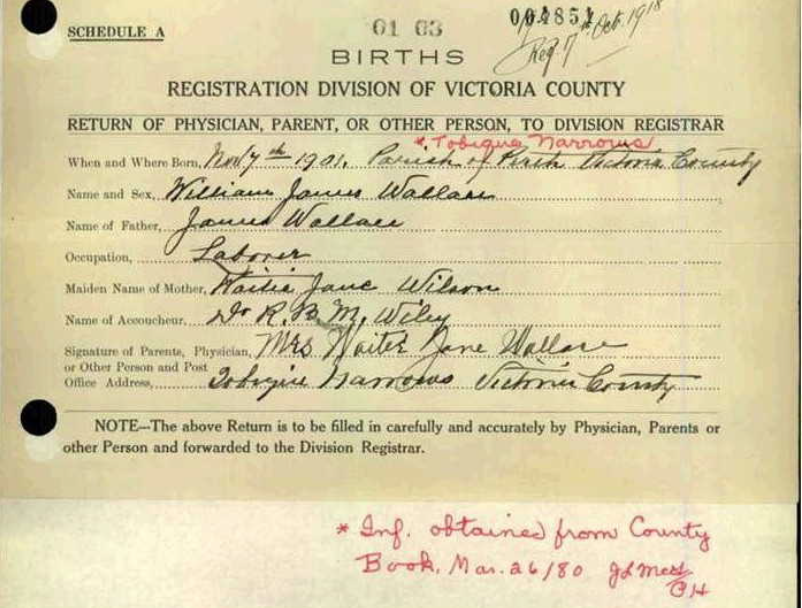 SCHEDULE A
01 03
004851
Reg. 7th Oct. 1918
BIRTHS
REGISTRATION DIVISION OF VICTORIA COUNTY
RETURN OF PHYSICIAN, PARENT, OR OTHER PERSON, TO DIVISION REGISTRAR
* Tobique Narrows
When and Where Born, Nov 7th 1901. Parish of Perth Victoria County
Name and Sex, William James Wallace
Name of Father, James Wallace
Occupation, Laborer
Maiden Name of Mother, Jane Wilson
Name of Accoucheur. Dr R. B. M. Wiley
Signature of Parents, Physician, Mrs Jane Wallace
or Other Person and Post
Office Address, Tobique Narrows Victoria County
NOTE—The above Return is to be filled in carefully and accurately by Physician, Parents or
other Person and forwarded to the Division Registrar.
* Inf. obtained from County
Book, Mar. 26/80